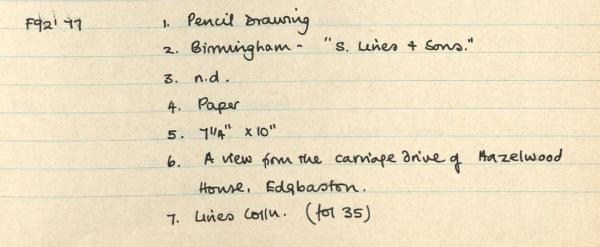 F92' 77 1. Pencil Drawing
2. Birmingham - "S. Lines & Sons."
3. n.d.
4. Paper
5. 7 1/4" x 10"
6. A view from the carriage drive of Hazelwood
House, Edgbaston.
7. Lines Colln. (fol 35)